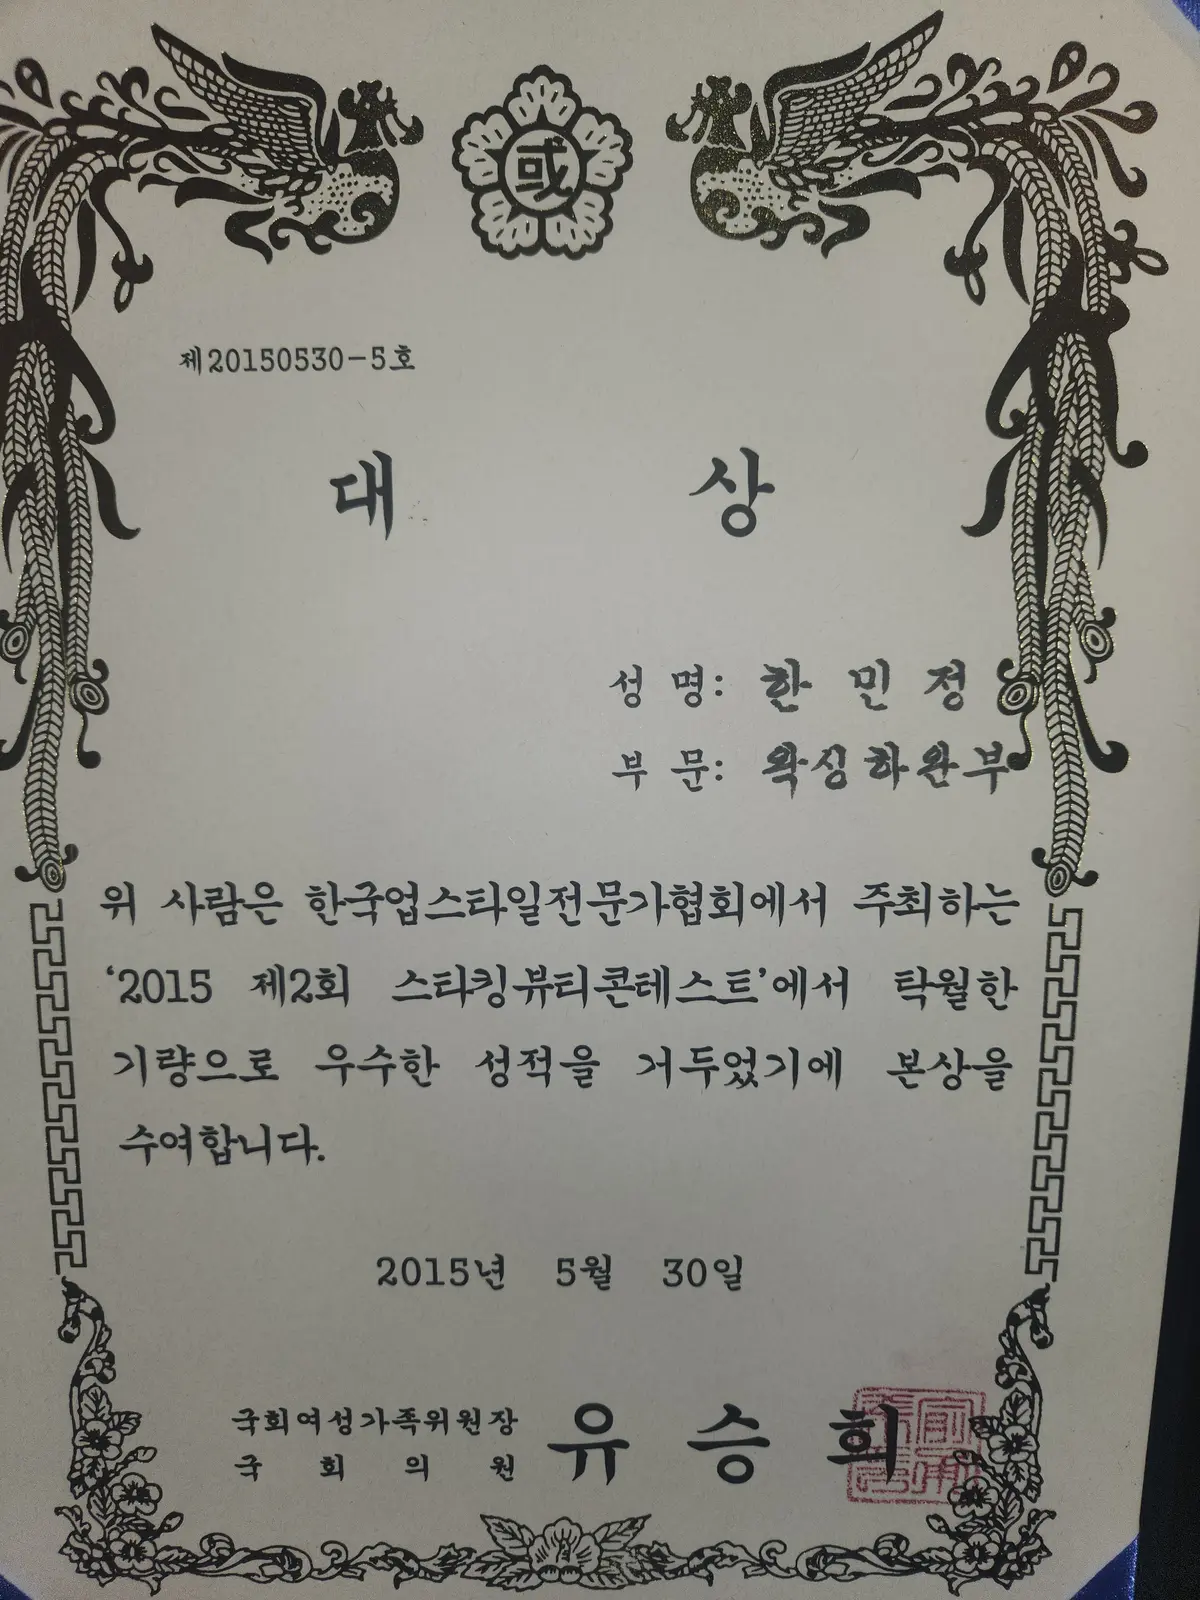 或
제20150530-5호
대 상
성 명: 한 민 정
부 문: 왁싱하완부
위 사람은 한국업스타일전문가협회에서 주최하는
‘2015 제2회 스타킹뷰티콘테스트’에서 탁월한
기량으로 우수한 성적을 거두었기에 본상을
수여합니다.
2015년 5월 30일
국회여성가족위원장
국 회 의 원 유 승 희